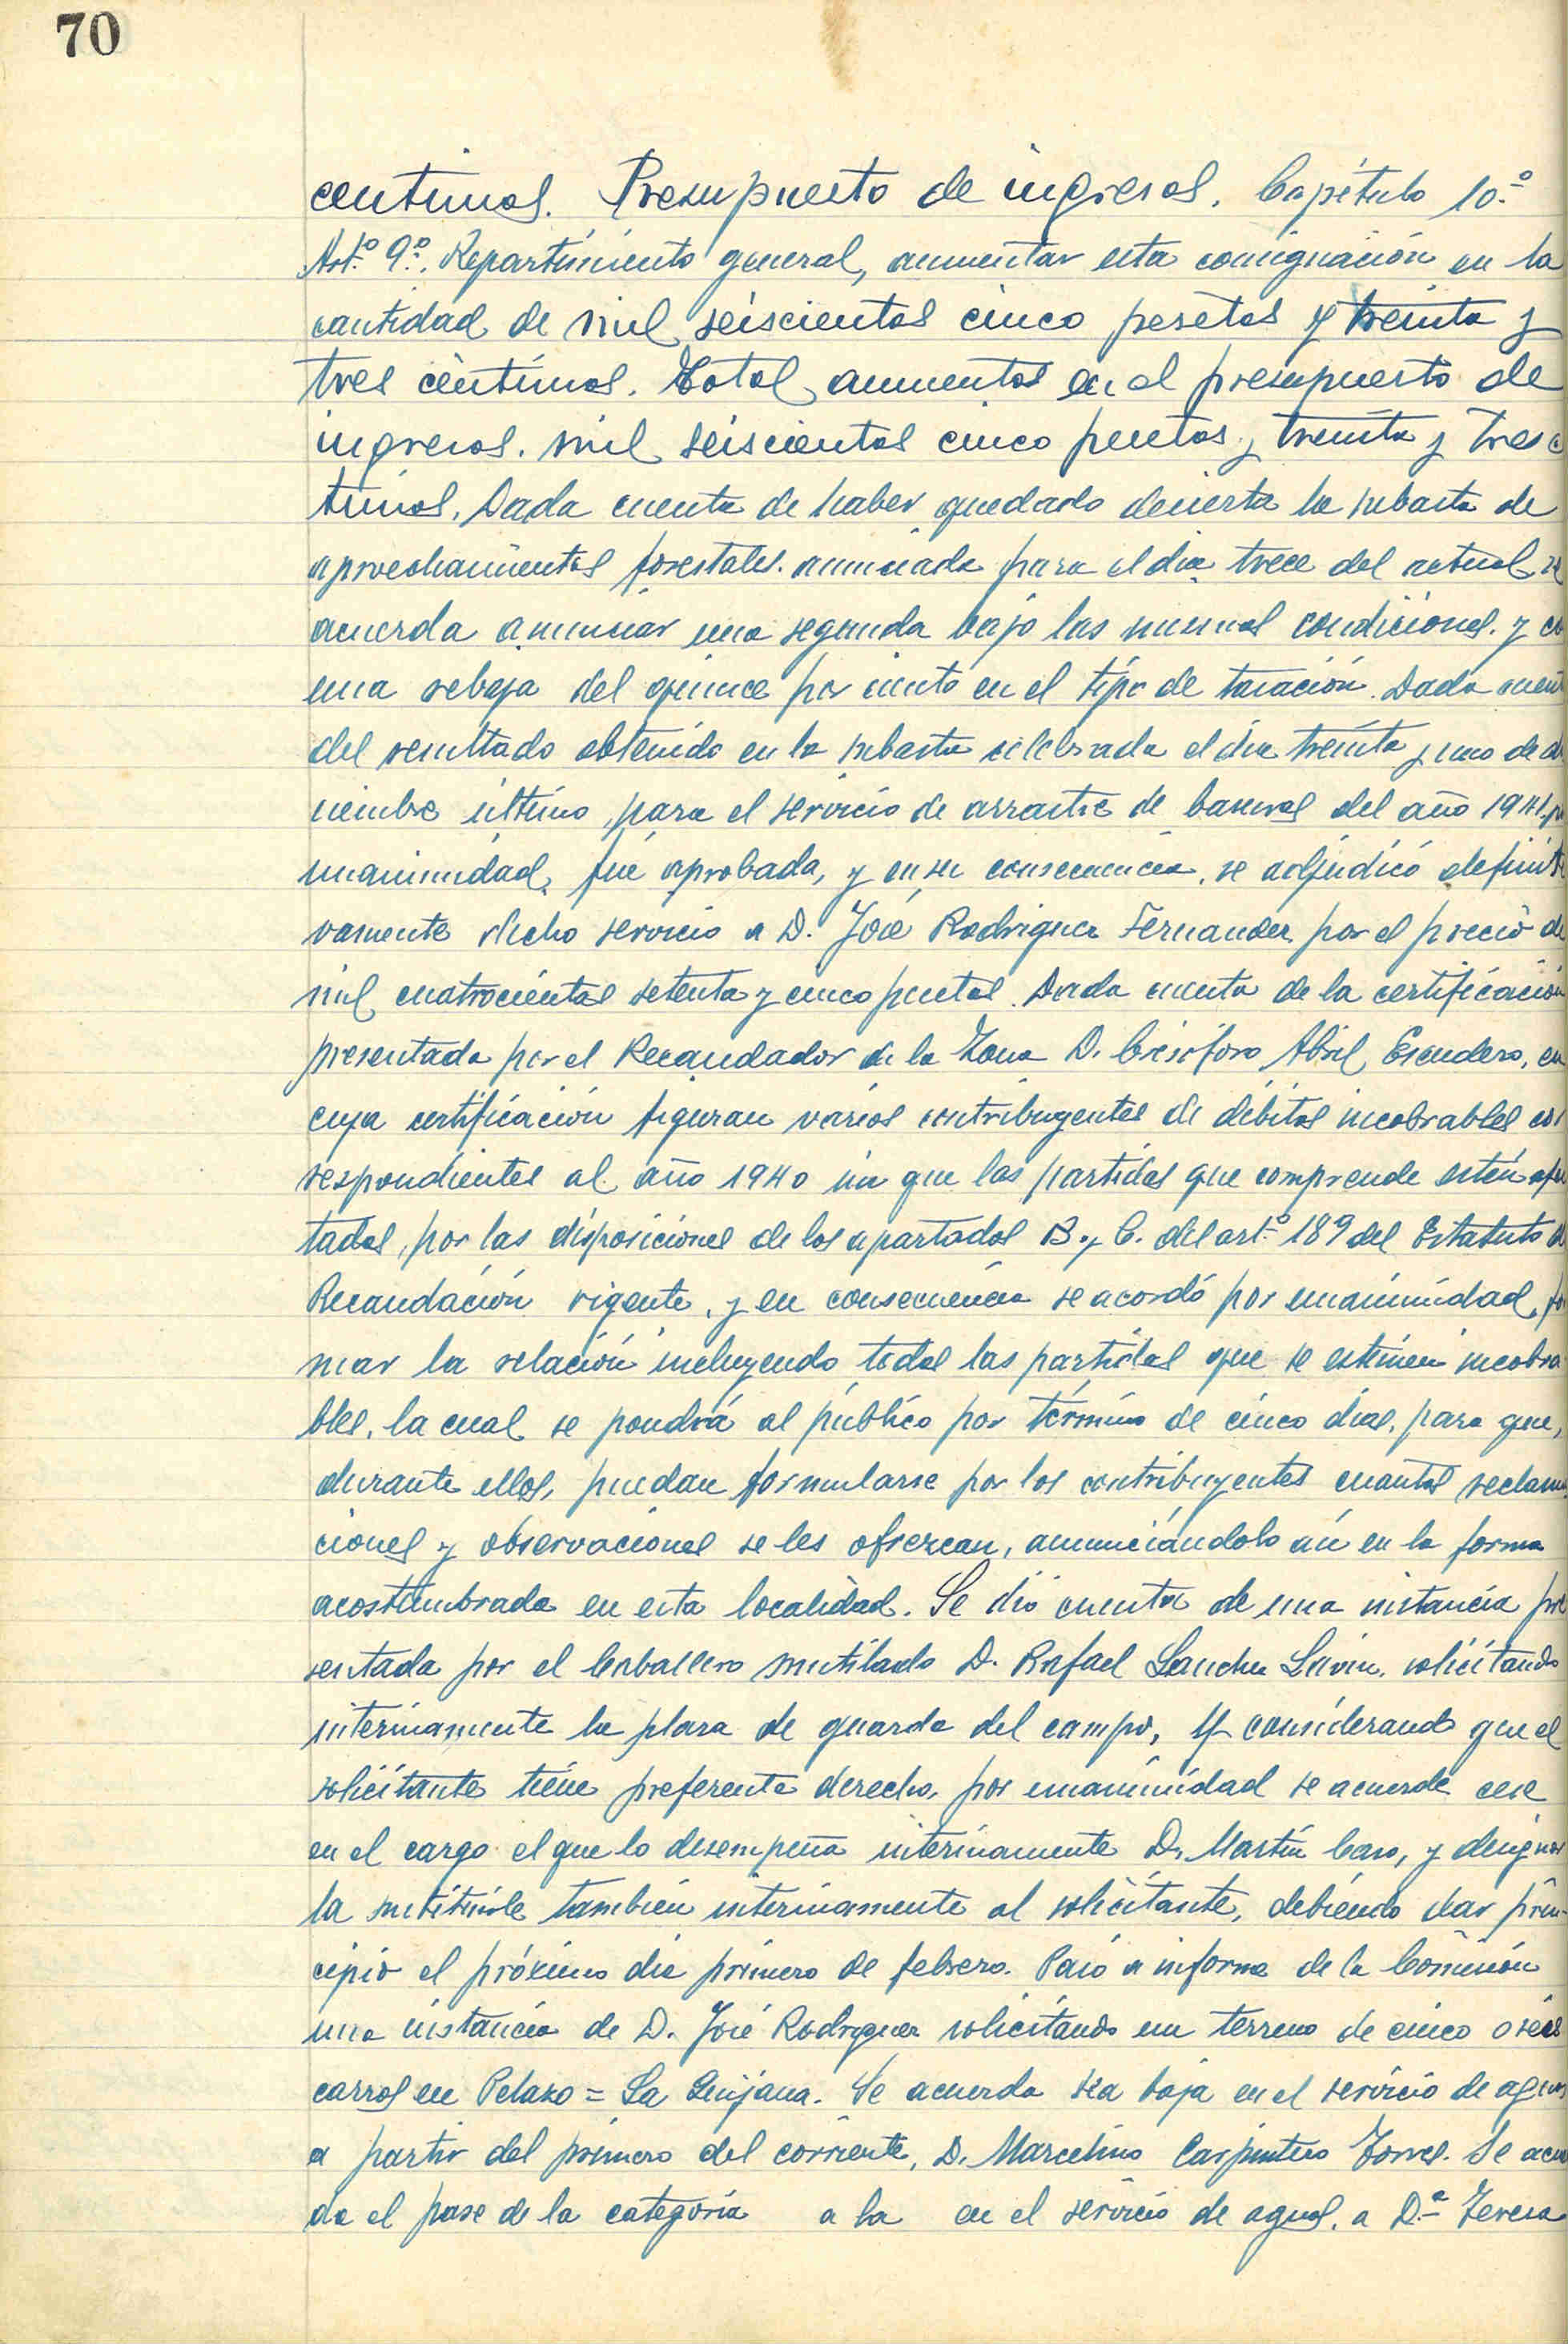 70
centimos. Presupuesto de ingresos. Capítulo 10.º
Art.º 9.º. Repartimiento general, aumentar esta consignación en la
cantidad de mil seiscientas cinco pesetas y treinta y
tres céntimos. Total aumentos en el presupuesto de
ingresos. mil seiscientas cinco pesetas y treinta y tres c
timos. Dada cuenta de haber quedado desierta la subasta de
aprovechamientos forestales anunciada para el dia trece del actual se
acuerda anunciar una segunda bajo las mismas condiciones y co
una rebaja del quince por ciento en el tipo de tasación. Dada cuent
del resultado obtenido en la subasta celebrada el dia treinta y uno de di
ciembre último, para el servicio de arrastre de basuras del año 1941. po
unanimidad, fué aprobada, y en su consecuencia, se adjudicó definiti
vamente dicho servicio a D. José Rodriguez Fernandez por el precio de
mil cuatrocientas setenta y cinco pesetas. Dada cuenta de la certificación
presentada por el Recaudador de la Zona D. Crisóforo Abril Escudero, en
cuya certificación figuran varios contribuyentes de débitos incobrables cor
respondientes al año 1940 sin que las partidas que comprende estén afec
tadas, por las disposiciones de los apartados B. y C. del art.º 189 del Estatuto de
Recaudación vigente, y en consecuencia se acordó por unanimidad, for
mar la relación incluyendo todas las partidas que se estimen incobra
bles, la cual se pondrá al público por término de cinco dias, para que,
durante ellos, puedan formularse por los contribuyentes cuantas reclama
ciones y observaciones se les ofrezcan, anunciándolo así en la forma
acostumbrada en esta localidad. Se dió cuenta de una instancia pre
sentada por el Caballero mutilado D. Rafael Sanchez solicitando
interinamente la plaza de guarda del campo, y considerando que el
solicitante tiene preferente derecho, por unanimidad se acuerda cese
en el cargo el que lo desempeña interinamente D. Martín Caso, y designar
la sustituirle también interinamente al solicitante, debiendo dar prin-
cipio el próximo dia primero de febrero. Pasó a informe de la Comisión
una instancia de D. José Rodriguez solicitando un terreno de cinco o seis
carros en Pelazo = La Quijana. Se acuerda sea baja en el servicio de aguas
a partir del primero del corriente, D. Marcelino Carpintero Torres. Se acuer
da el pase de la categoría a la en el servicio de aguas, a D.ª Teresa